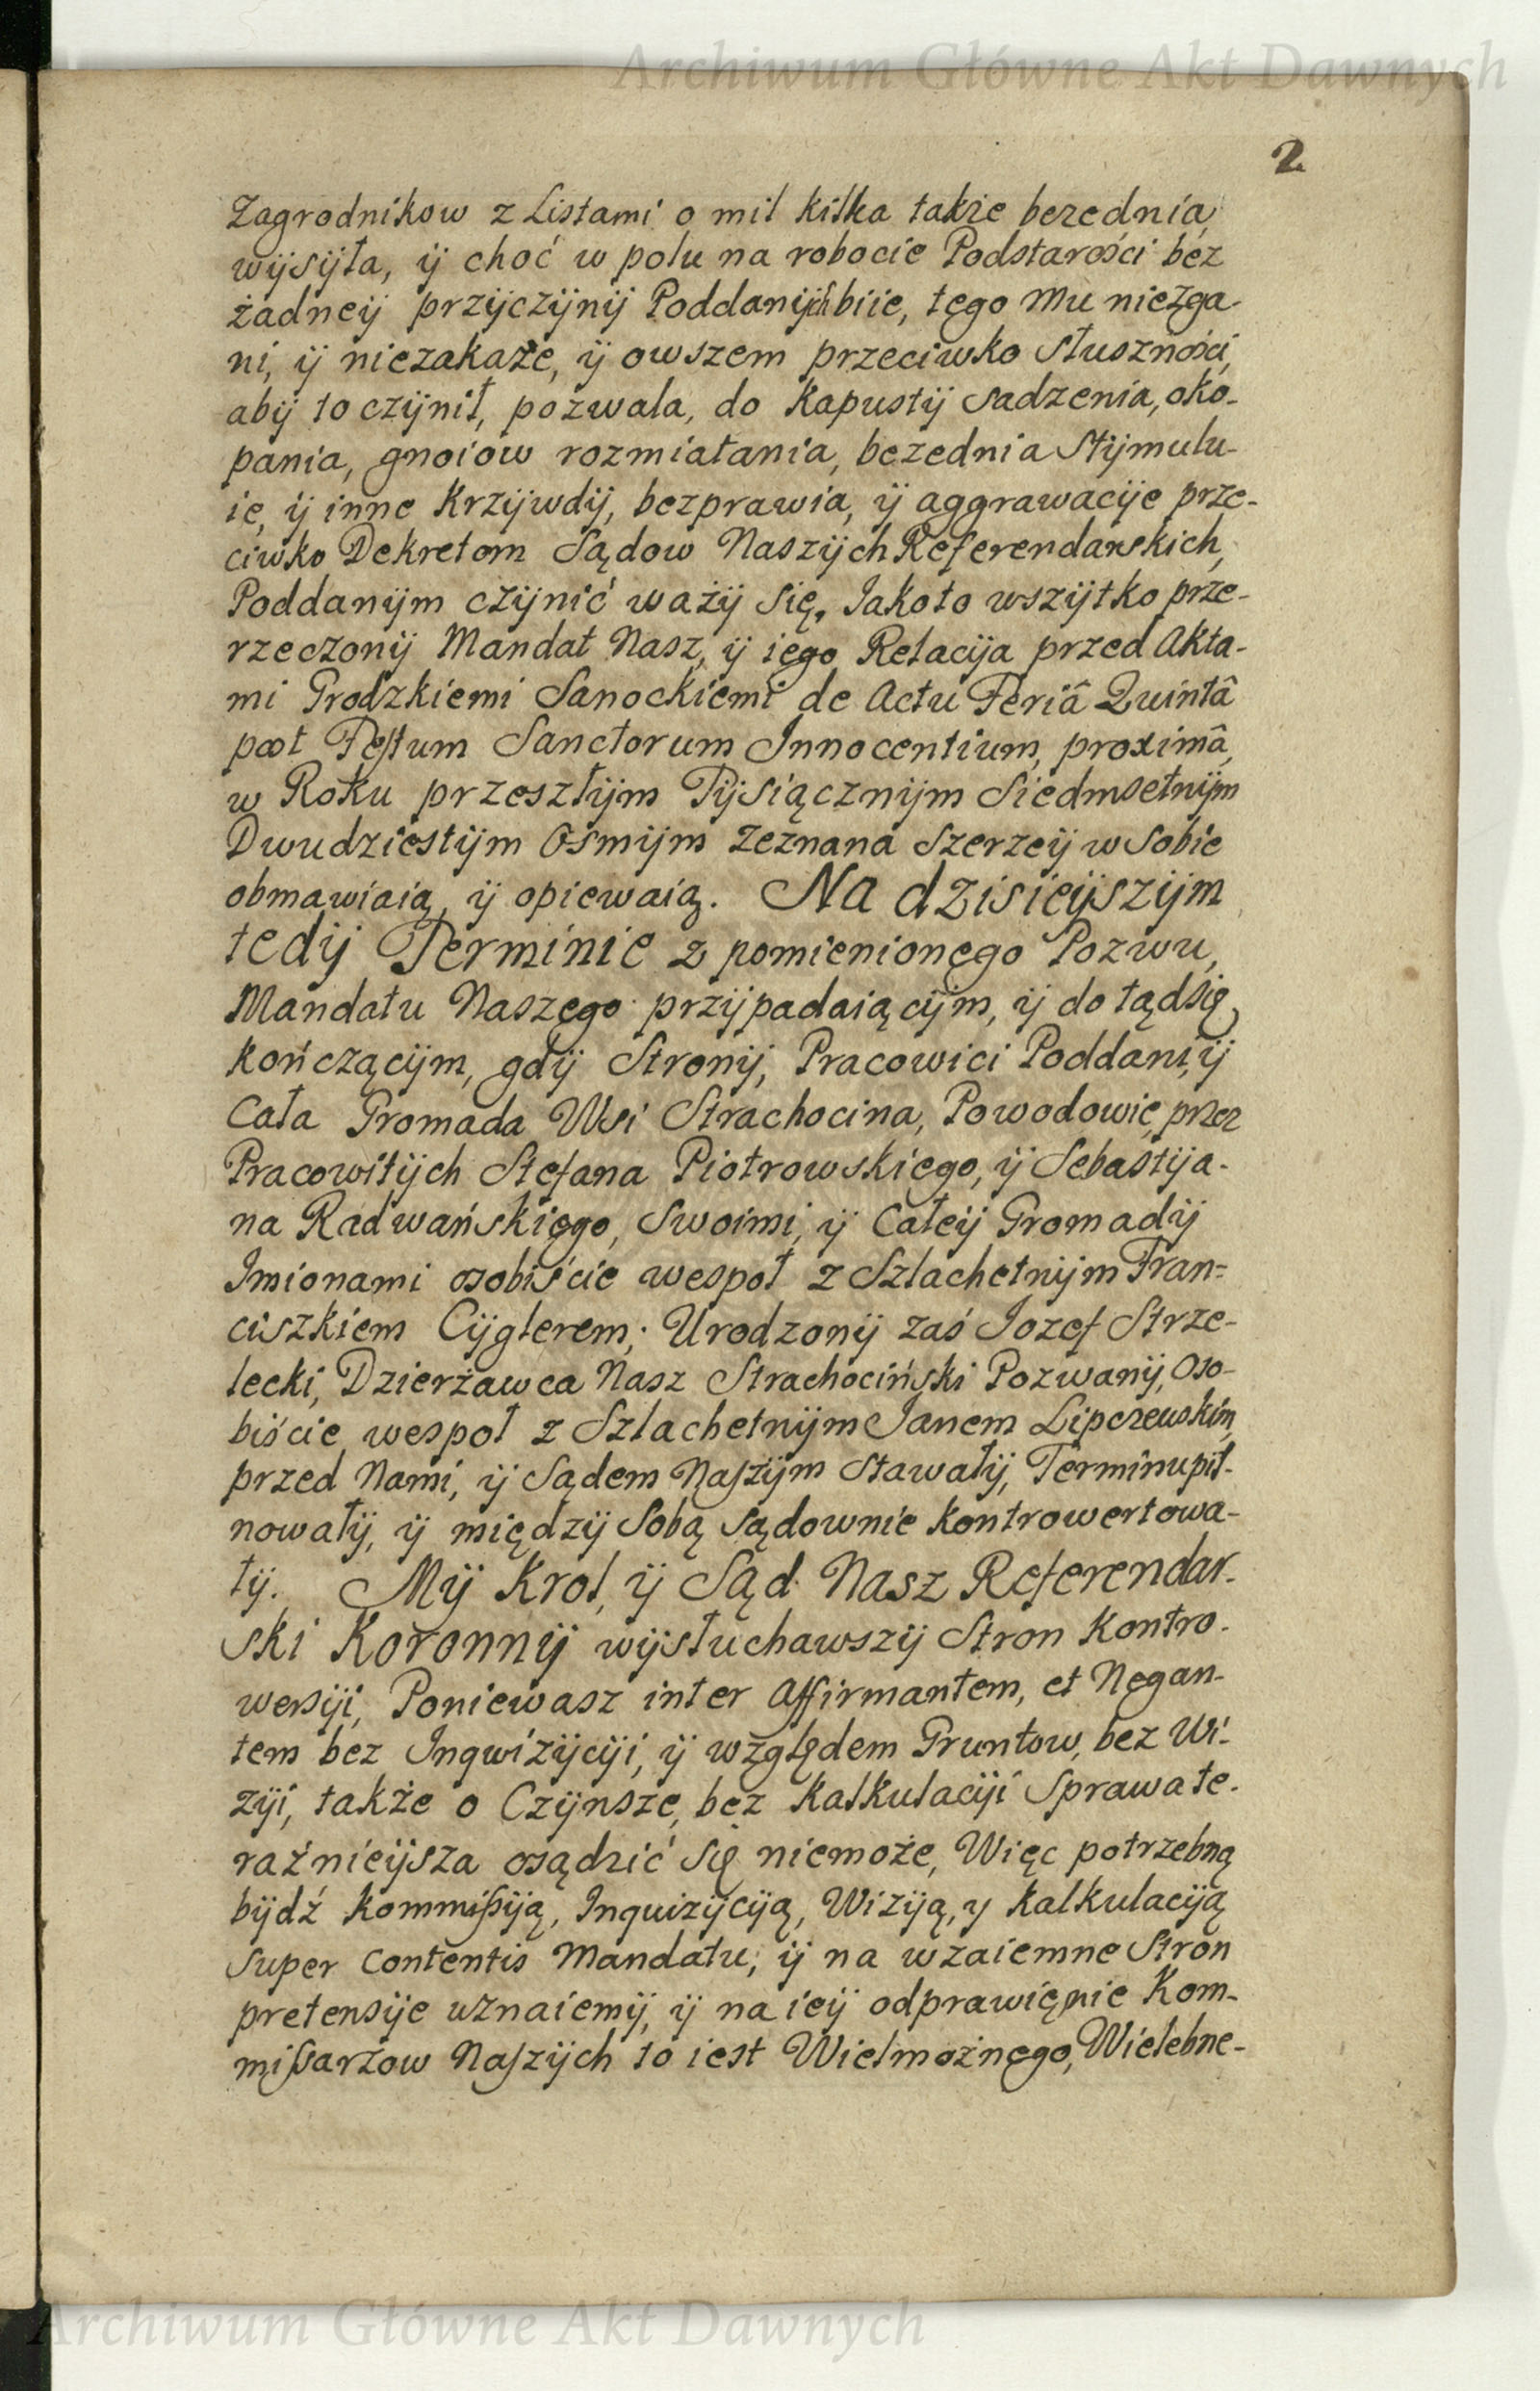 Archiwum Główne Akt Dawnych
2
Zagrodnikow z Listami o mil kilka także bezednia,
wÿsÿła, ÿ choć w polu na robocie Podstarości bez
żadneÿ przÿczÿnÿ Poddanÿch biie, tego mu niezga-
ni, ÿ niezakaże, ÿ owszem przeciwko słuszności,
abÿ to czÿnił, pozwala, do kapustÿ sadzenia, oko-
pania, gnoiow rozmiatania, bezednia stÿmulu-
ie, ÿ inne krzÿwdÿ, bezprawia, ÿ aggrawacÿe prze-
ciwko Dekretom Sądow Naszÿch Referendarskich,
Poddanÿm czÿnić ważÿ się, Jakoto wszÿtko prze-
rzeczonÿ Mandat Nasz, ÿ iego Relacÿa przed Akta-
mi Grodzkiemi Sanockiemi de Actu Feriâ Quintâ
post Festum Sanctorum Innocentium, proximâ,
w Roku przeszłÿm Tÿsiącznÿm Siedmsetnÿm
Dwudziestÿm Osmÿm zeznana szerzeÿ w sobie
obmawiaią, ÿ opiewaią. Na dzisieÿszÿm
tedÿ Terminie z pomienionego Pozwu,
Mandatu Naszego przÿpadaiącÿm, ÿ do tądsię
kończącÿm, gdÿ Stronÿ, Pracowici Poddani, ÿ
Cała Gromada Wsi Strachocina, Powodowie, przez
Pracowitÿch Stefana Piotrowskiego, ÿ Sebastÿa-
na Radwańskiego, Swoimi, ÿ całeÿ Gromadÿ
Imionami osobiście wespoł z Szlachetnÿm Fran=
ciszkiem Cÿglerem; Urodzonÿ zaś Jozef Strze-
lecki, Dzierżawca Nasz Strachociński Pozwanÿ, Oso-
biście, wespoł z Szlachetnÿm Janem Lipczewskim,
przed Nami, ÿ Sądem Naszÿm stawałÿ, Terminu pil-
nowałÿ, ÿ międzÿ sobą sądownie kontrowertowa-
łÿ. Mÿ Krol, ÿ Sąd Nasz Referendar-
ski Koronnÿ wÿsłuchawszÿ Stron kontro-
wersÿi, Poniewasz inter Affirmantem, et Negan-
tem bez Inqwizÿcÿi, ÿ względem Gruntow, bez Wi-
zÿi, także o Czÿnsze, bez kalkulacÿi sprawa te-
raźnieÿsza osądzić się niemoże, Więc potrzebną
bÿdź kommißÿą, Inquizÿcÿą, Wizÿą, y kalkulacÿą
super contentis Mandatu, ÿ na wzaiemne Stron
pretensÿe uznaiemÿ, ÿ na ieÿ odprawienie Kom-
mißarzow Naszÿch to iest Wielmożnego, Wielebne-
Archiwum Główne Akt Dawnych